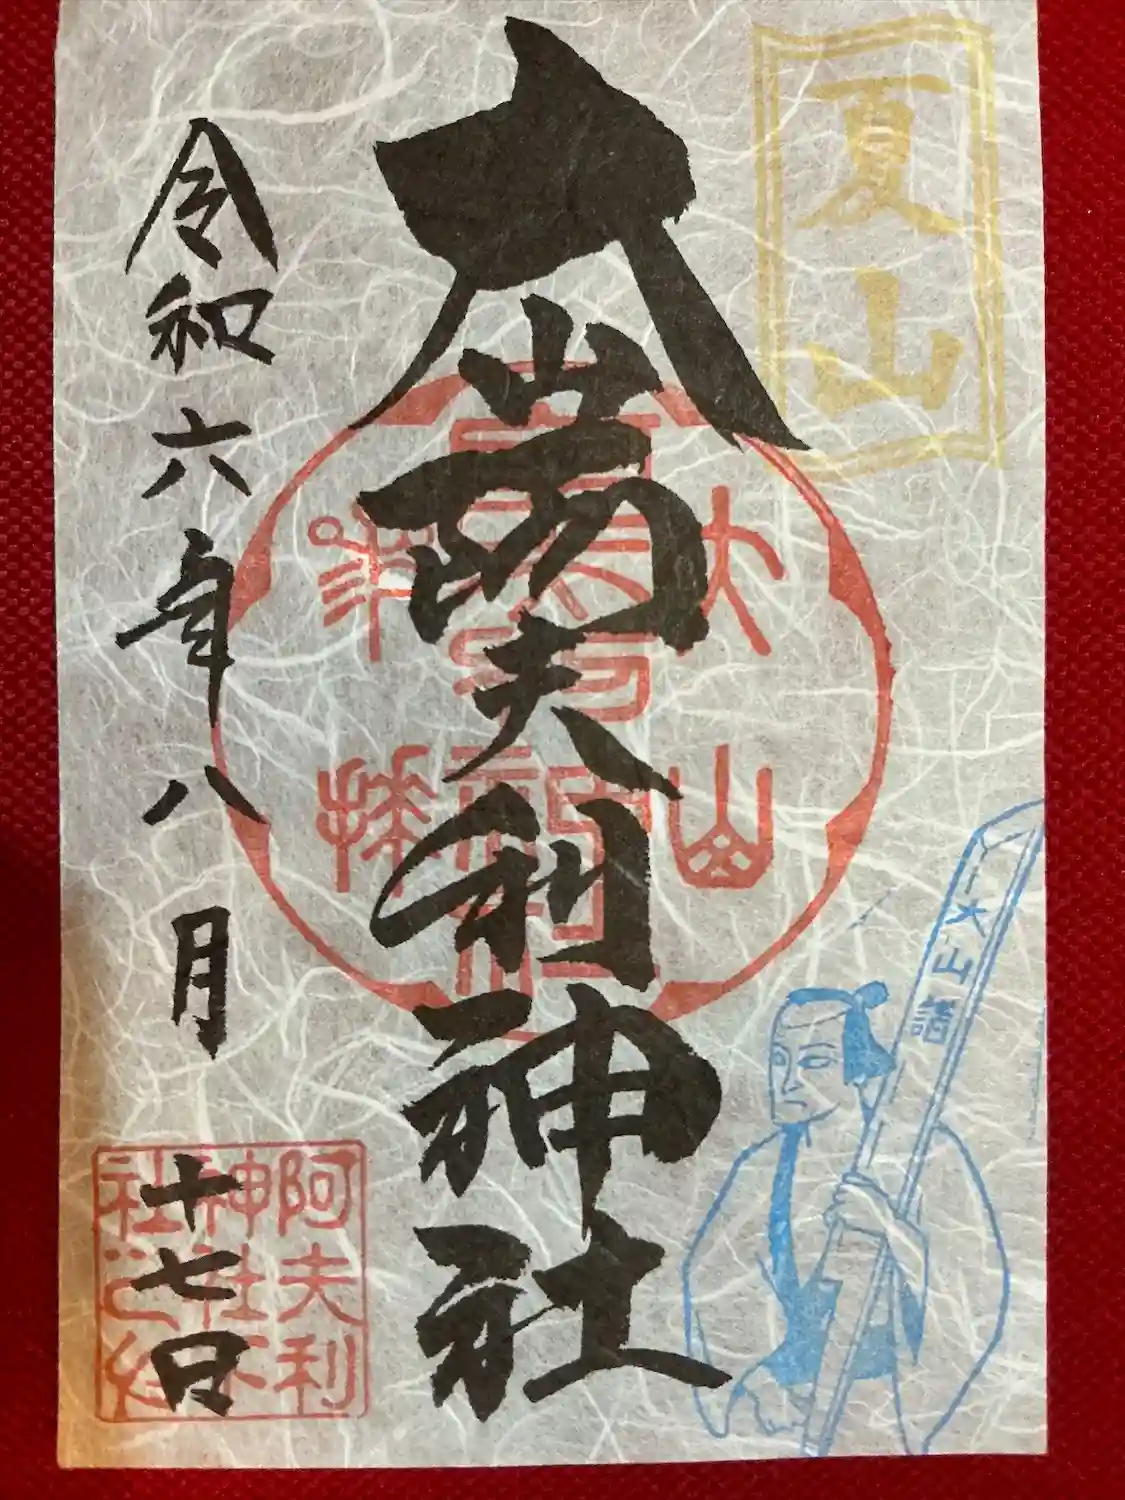 夏山
大山阿夫利神社
大山
阿夫利神社
参拝
大山詣
令和六年八月十七日
阿夫利
神社下
社之印